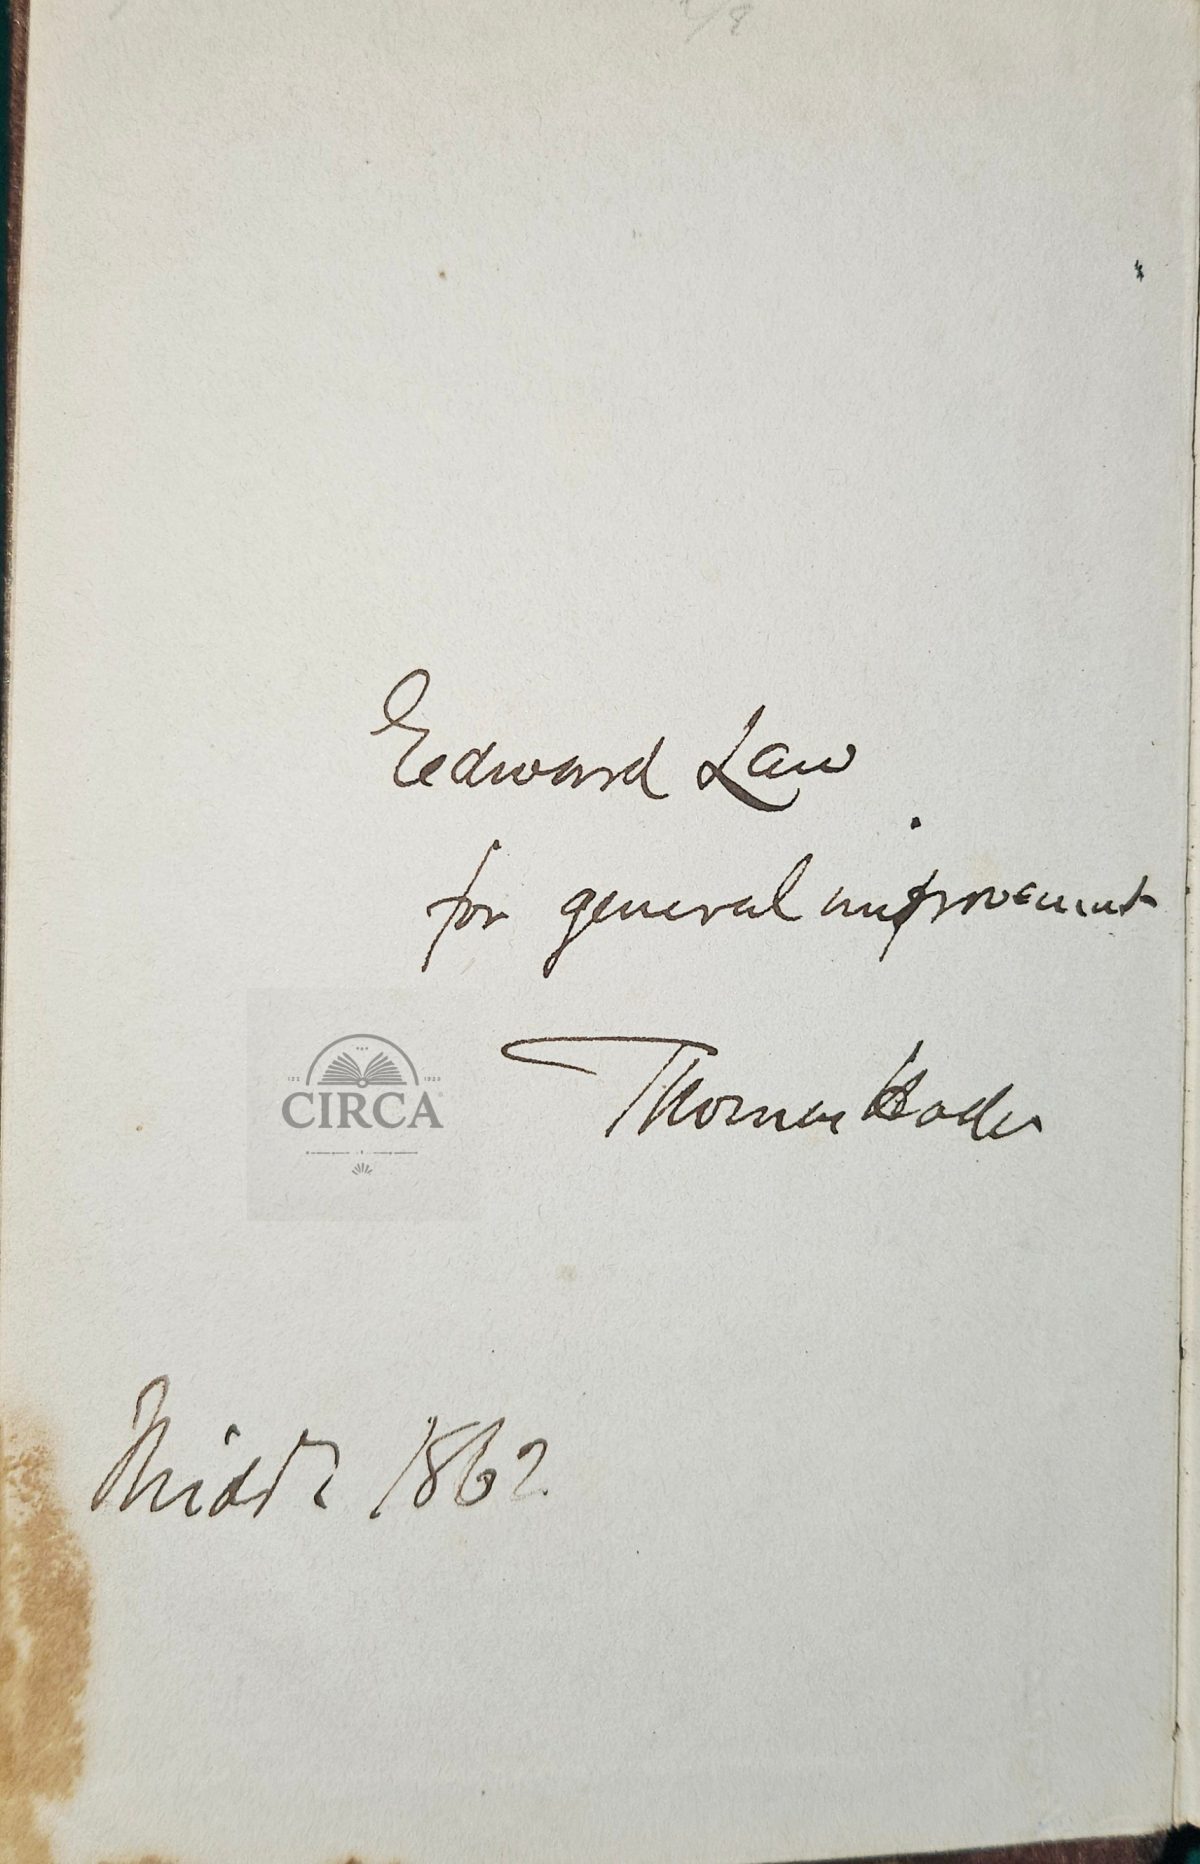 Edward Law
for general improvement
Thomas
CIRCA
1862